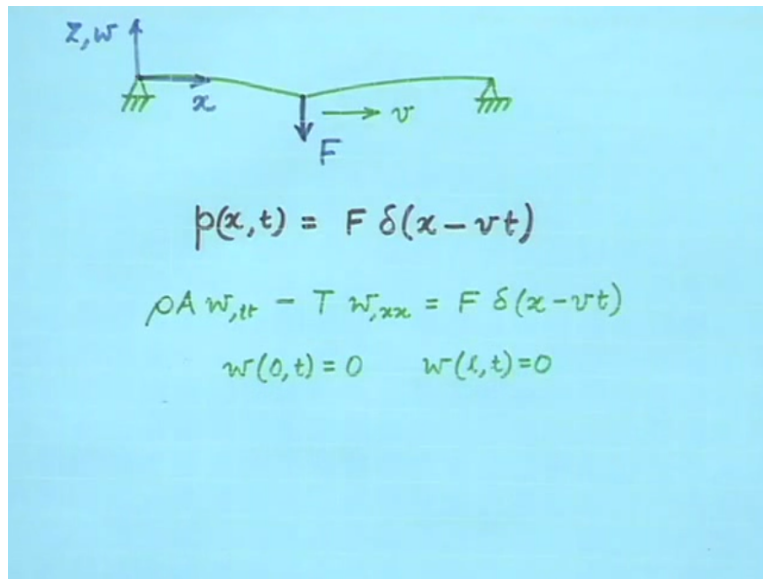 z, w
x
v
F
p(x,t) = F δ(x-vt)
ρA w,tt - T w,xx = F δ(x-vt)
w(0,t)=0 w(l,t)=0